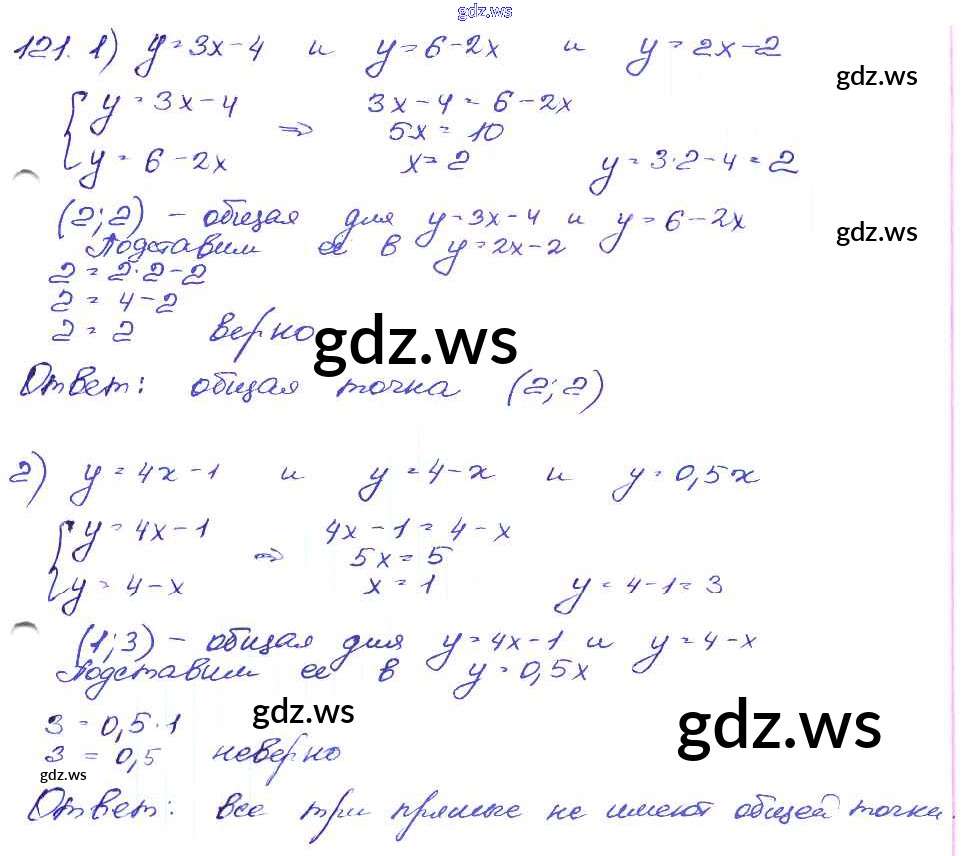 gdz.ws
121. 1) y = 3x - 4 и y = 6 - 2x и y = 2x - 2
gdz.ws
{ y = 3x - 4 3x - 4 = 6 - 2x
⇒ 5x = 10
y = 6 - 2x x = 2 y = 3·2 - 4 = 2
(2; 2) - общая для y = 3x - 4 и y = 6 - 2x
gdz.ws
Подставим ее в y = 2x - 2
2 = 2·2 - 2
2 = 4 - 2
2 = 2 верно
gdz.ws
Ответ: общая точка (2; 2)
2) y = 4x - 1 и y = 4 - x и y = 0,5x
{ y = 4x - 1 4x - 1 = 4 - x
⇒ 5x = 5
y = 4 - x x = 1 y = 4 - 1 = 3
(1; 3) - общая для y = 4x - 1 и y = 4 - x
Подставим ее в y = 0,5x
gdz.ws
3 = 0,5·1
gdz.ws
3 = 0,5 неверно
gdz.ws
Ответ: все три прямые не имеют общей точки.